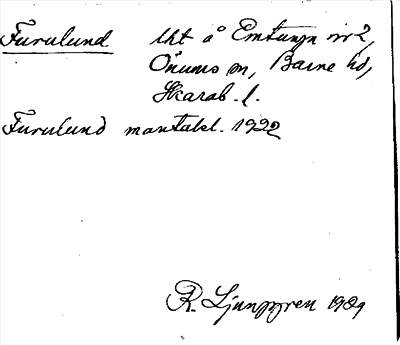 Furulund lht å Emtunga nr 2,
Önums sn, Barne hd,
Skarab. l.
Furulund mantalsl. 1922
R. Ljunggren 1989